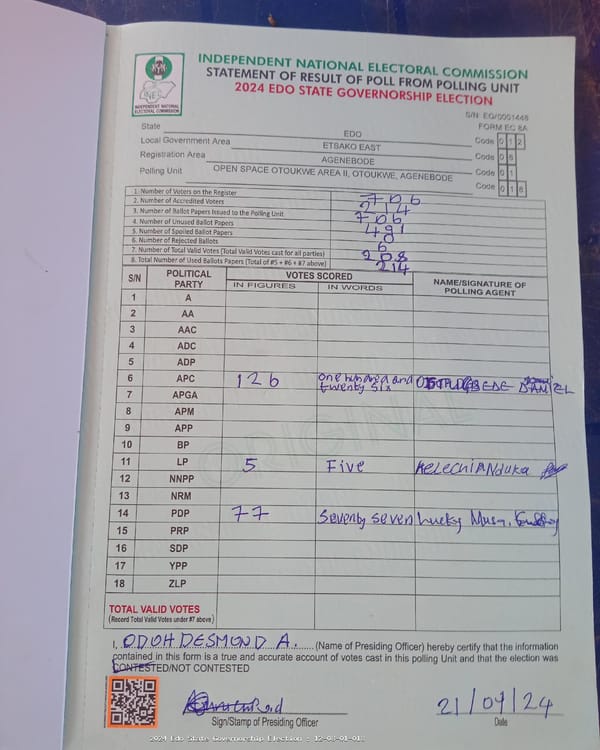 INDEPENDENT NATIONAL ELECTORAL COMMISSION
STATEMENT OF RESULT OF POLL FROM POLLING UNIT
2024 EDO STATE GOVERNORSHIP ELECTION
INDEPENDENT NATIONAL
ELECTORAL COMMISSION
S/N: EG/0001448
FORM EC 8A
State EDO Code 0 1 2
Local Government Area ETSAKO EAST Code 0 8
Registration Area AGENEBODE Code 0 1
Polling Unit OPEN SPACE OTOUKWE AREA II, OTOUKWE, AGENEBODE Code 0 1 8
1. Number of Voters on the Register 706
2. Number of Accredited Voters 214
3. Number of Ballot Papers Issued to the Polling Unit 706
4. Number of Unused Ballot Papers 491
5. Number of Spoiled Ballot Papers 0
6. Number of Rejected Ballots 6
7. Number of Total Valid Votes (Total Valid Votes cast for all parties) 208
8. Total Number of Used Ballots Papers (Total of #5 + #6 + #7 above) 214
S/N POLITICAL PARTY VOTES SCORED NAME/SIGNATURE OF POLLING AGENT
IN FIGURES IN WORDS
1 A
2 AA
3 AAC
4 ADC
5 ADP
6 APC 126 one hundred and twenty six
7 APGA
8 APM
9 APP
10 BP
11 LP 5 Five Kelechi Anduka
12 NNPP
13 NRM
14 PDP 77 Seventy seven Lucky Musa
15 PRP
16 SDP
17 YPP
18 ZLP
TOTAL VALID VOTES
(Record Total Valid Votes under #7 above)
ORIGINAL
I, ODOH DESMOND A. (Name of Presiding Officer) hereby certify that the information
contained in this form is a true and accurate account of votes cast in this polling Unit and that the election was
CONTESTED/NOT CONTESTED
21/09/24
Sign/Stamp of Presiding Officer Date
2024 Edo State Governorship Election : 12-08-01-018